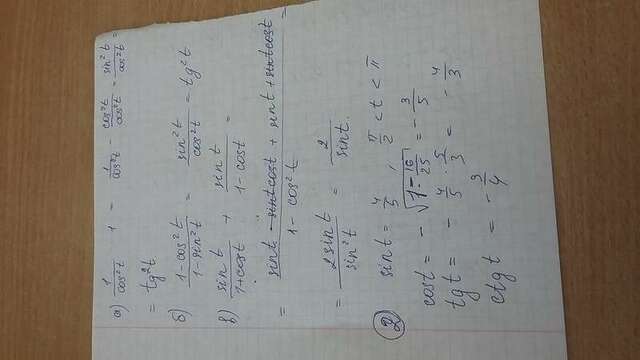 а) 1/cos²t 1 - 1/cos²t - cos²t/cos²t = sin²t/cos²t =
= tg²t
б) 1-cos²t/1-sin²t = sin²t/cos²t = tg²t
в) sint/1+cost + sint/1-cost =
= sint - sintcost + sint + sintcost/1-cos²t =
= 2sint/sin²t = 2/sint.
2 sint = 4/5 , π/2 < t < π
cost = - √1-16/25 = - 3/5
tgt = - 4/5 · 5/3 = - 4/3
ctgt = - 3/4